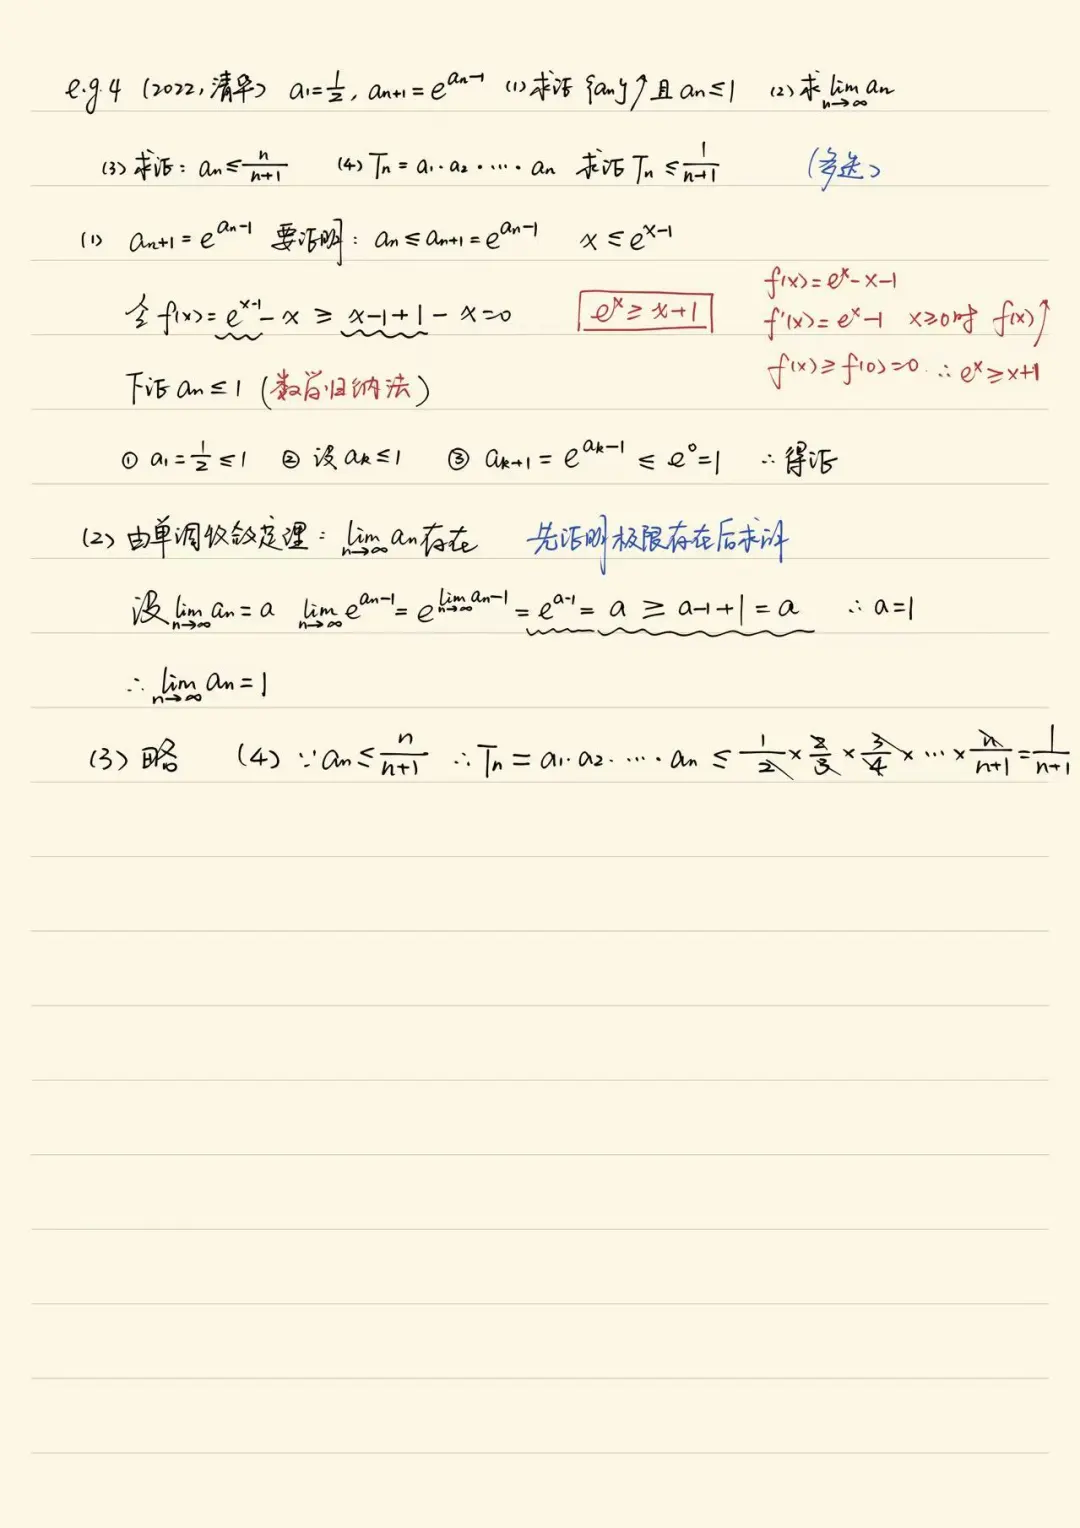 e.g.4 (2022,清华) a₁=1/2, aₙ₊₁=e^(aₙ-1) (1)求证{aₙ}↗且aₙ≤1 (2)求lim(n→∞) aₙ
(3)求证: aₙ≤n/(n+1) (4)Tₙ=a₁·a₂·…·aₙ 求证Tₙ≤1/(n+1) (多选)
(1) aₙ₊₁=e^(aₙ-1) 要证明: aₙ≤aₙ₊₁=e^(aₙ-1) x≤e^(x-1)
令f(x)=e^(x-1)-x≥x-1+1-x=0 e^x≥x+1
f(x)=e^x-x-1
f'(x)=e^x-1 x≥0时 f(x)↗
f(x)≥f(0)=0 ∴e^x≥x+1
下证aₙ≤1 (数学归纳法)
① a₁=1/2≤1 ② 设aₖ≤1 ③ aₖ₊₁=e^(aₖ-1)≤e⁰=1 ∴得证
(2) 由单调收敛定理: lim(n→∞) aₙ存在 先证明极限存在后求解
设lim(n→∞) aₙ=a lim(n→∞) e^(aₙ-1)=e^(lim(n→∞) aₙ-1)=e^(a-1)=a≥a-1+1=a ∴a=1
∴lim(n→∞) aₙ=1
(3) 略 (4) ∵aₙ≤n/(n+1) ∴Tₙ=a₁·a₂·…·aₙ≤1/2×2/3×3/4×…×n/(n+1)=1/(n+1)